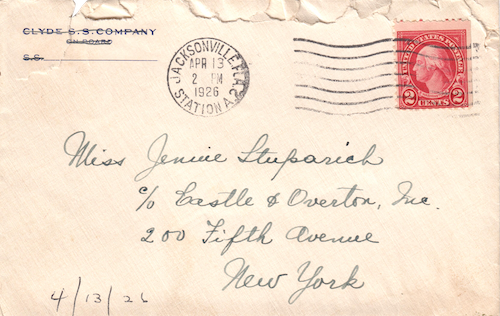 CLYDE S.S. COMPANY
ON BOARD
S.S.
JACKSONVILLE, FLA.
APR 13
2 PM
1926
STATION A.
UNITED STATES POSTAGE
2 CENTS 2
Miss Jennie Stuparich
c/o Castle & Overton, Inc.
200 Fifth Avenue
New York
4/13/26